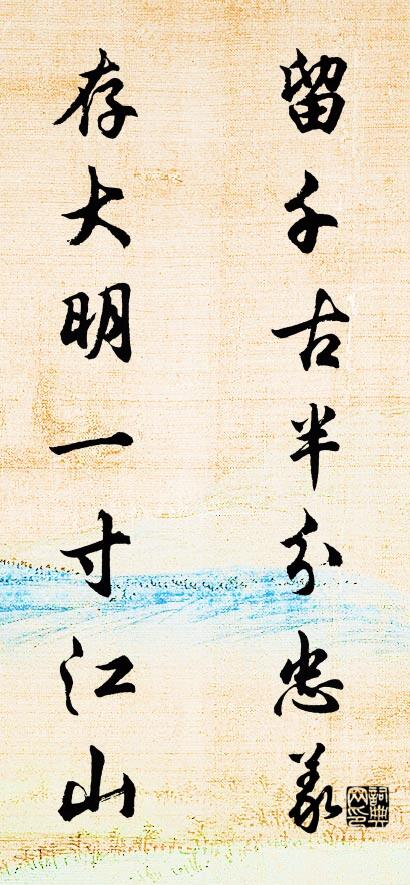 留千古半分忠義
存大明一寸江山
詞典